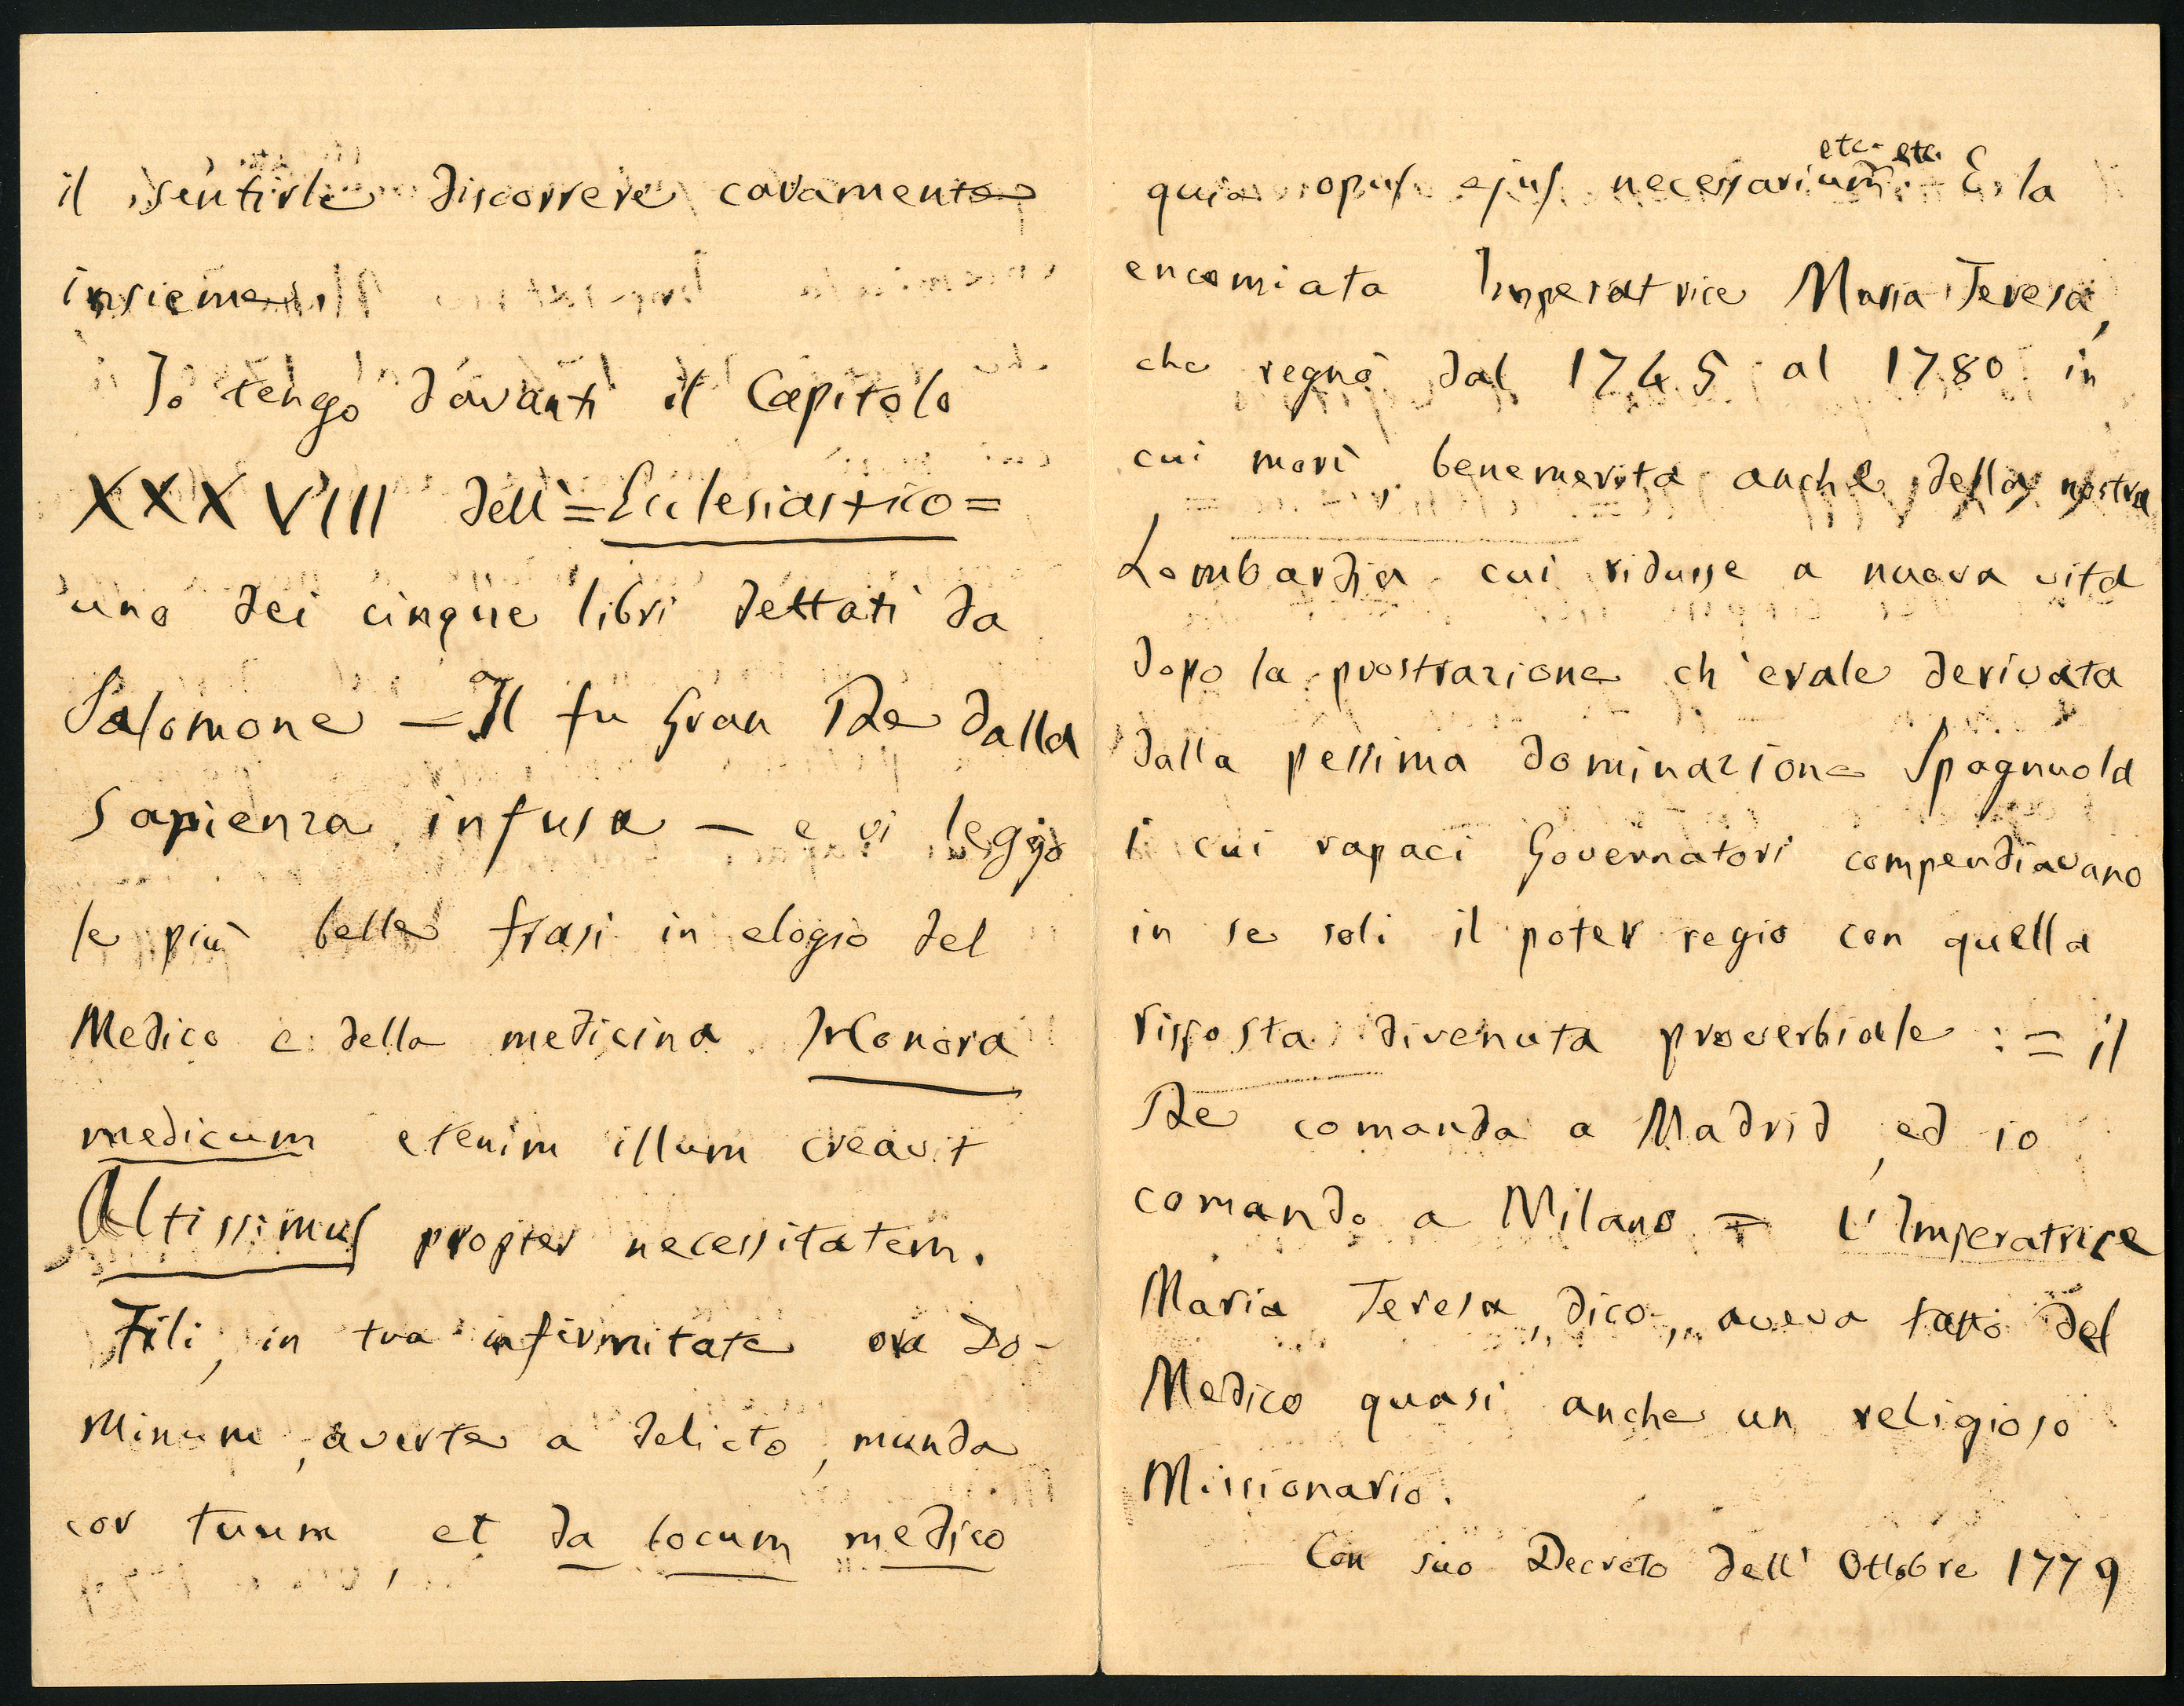 il sentirle discorrere caramente
insieme.
Io tengo davanti il Capitolo
XXXVIII dell'=Ecclesiastico=
uno dei cinque libri dettati da
Salomone — Il fu Gran Re dalla
Sapienza infusa — e vi leggo
le più belle frasi in elogio del
Medico e della medicina. Honora
medicum etenim illum creavit
Altissimus propter necessitatem.
Fili, in tua infirmitate ora Do-
minum, averte a delicto, munda
cor tuum, et da locum medico
quia opus ejus necessarium etc. etc. E la
encomiata Imperatrice Maria Teresa,
che regnò dal 1745 al 1780 in
cui morì benemerita anche della nostra
Lombardia cui ridusse a nuova vita
dopo la prostrazione ch'erale derivata
dalla pessima dominazione Spagnuola
i cui rapaci Governatori compendiavano
in se soli il poter regio con quella
risposta divenuta proverbiale := il
Re comanda a Madrid, ed io
comando a Milano = L'Imperatrice
Maria Teresa, dico, aveva fatto del
Medico quasi anche un religioso
Missionario.
Con suo Decreto dell' Ottobre 1779